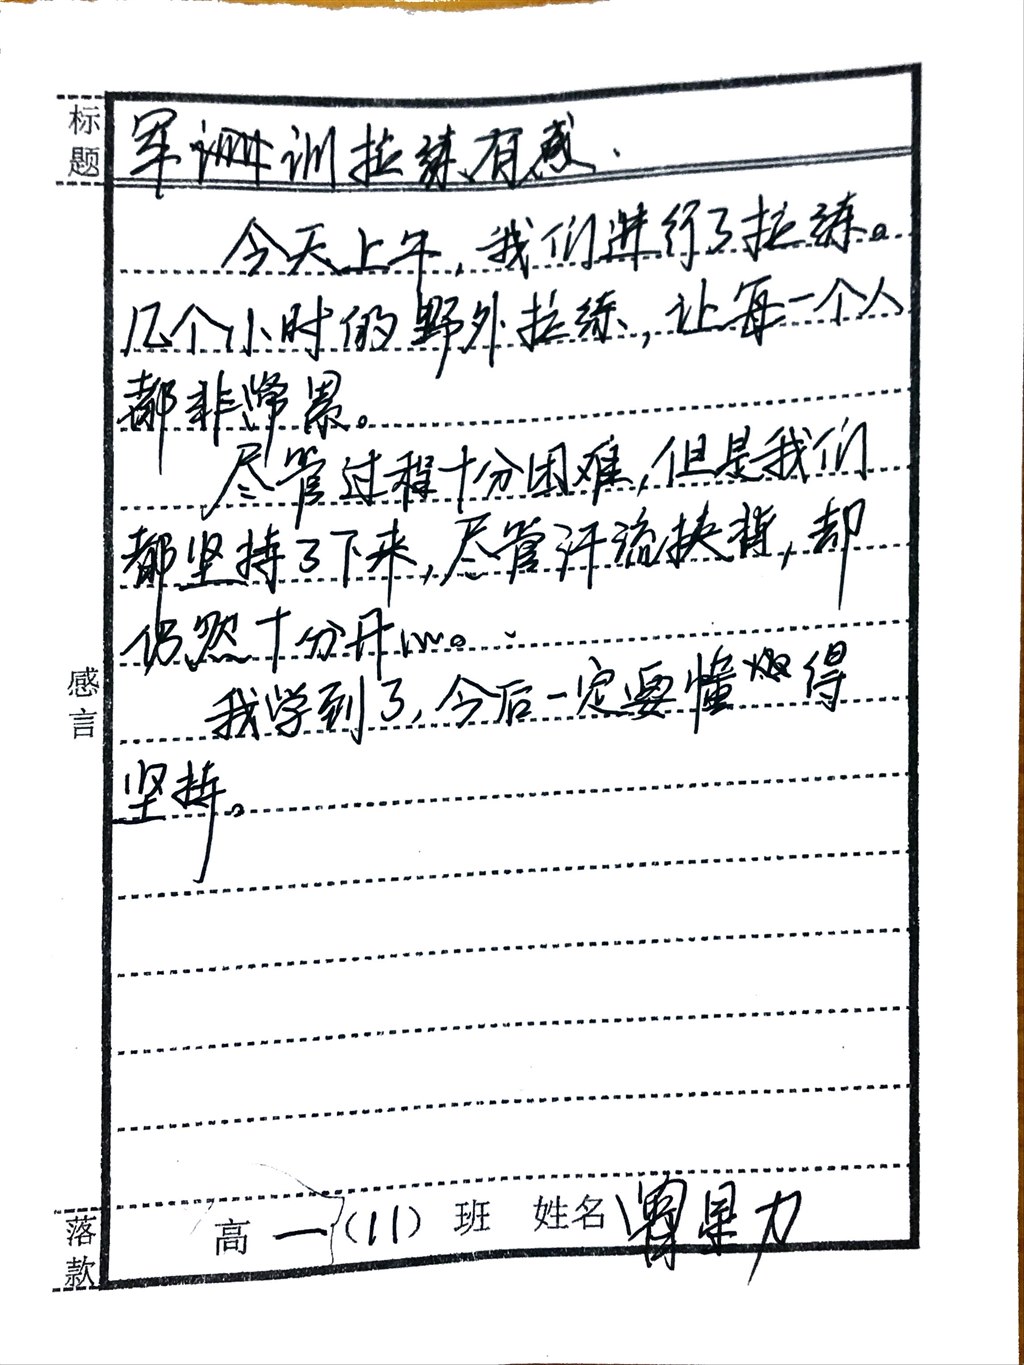 标题
军训训拉练有感.
今天上午,我们进行了拉练。
几个小时的野外拉练,让每一个人
都非常累。
尽管过程十分困难,但是我们
都坚持了下来,尽管汗流挟背,却
仍然十分开心。
感言
我学到了,今后一定要懂得
坚持。
落款
高一(11)班 姓名 力